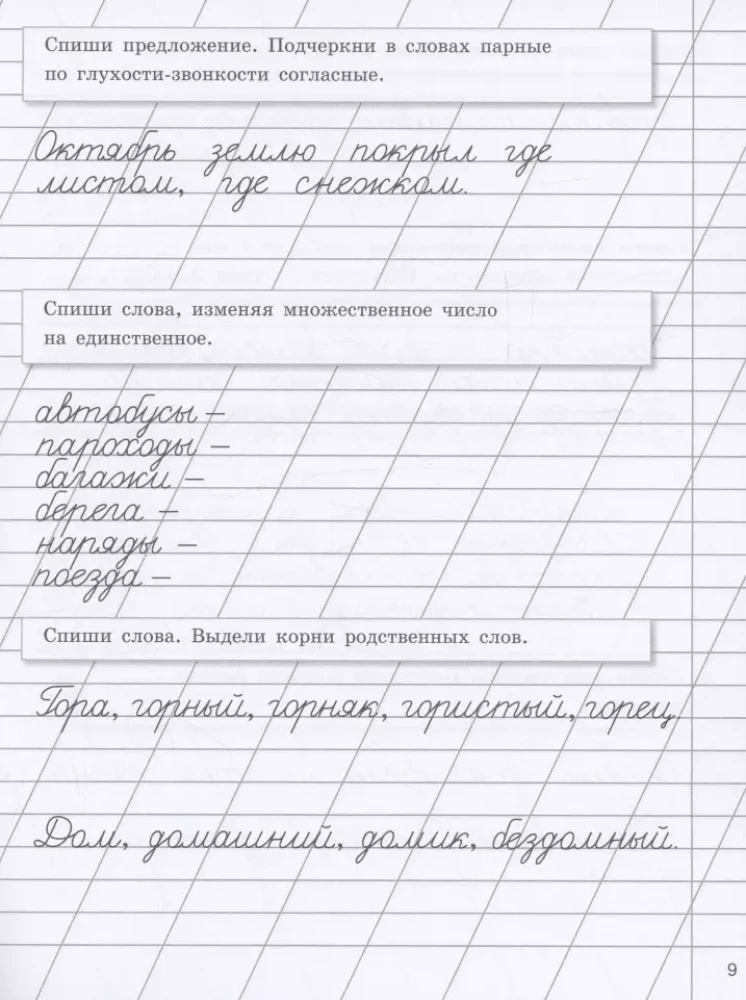 Спиши предложение. Подчеркни в словах парные
по глухости-звонкости согласные.
Октябрь землю покрыл где
листом, где снежком.
Спиши слова, изменяя множественное число
на единственное.
автобусы –
пароходы –
багажи –
берега –
наряды –
поезда –
Спиши слова. Выдели корни родственных слов.
Гора, горный, горняк, гористый, горец.
Дом, домашний, домик, бездомный.
9